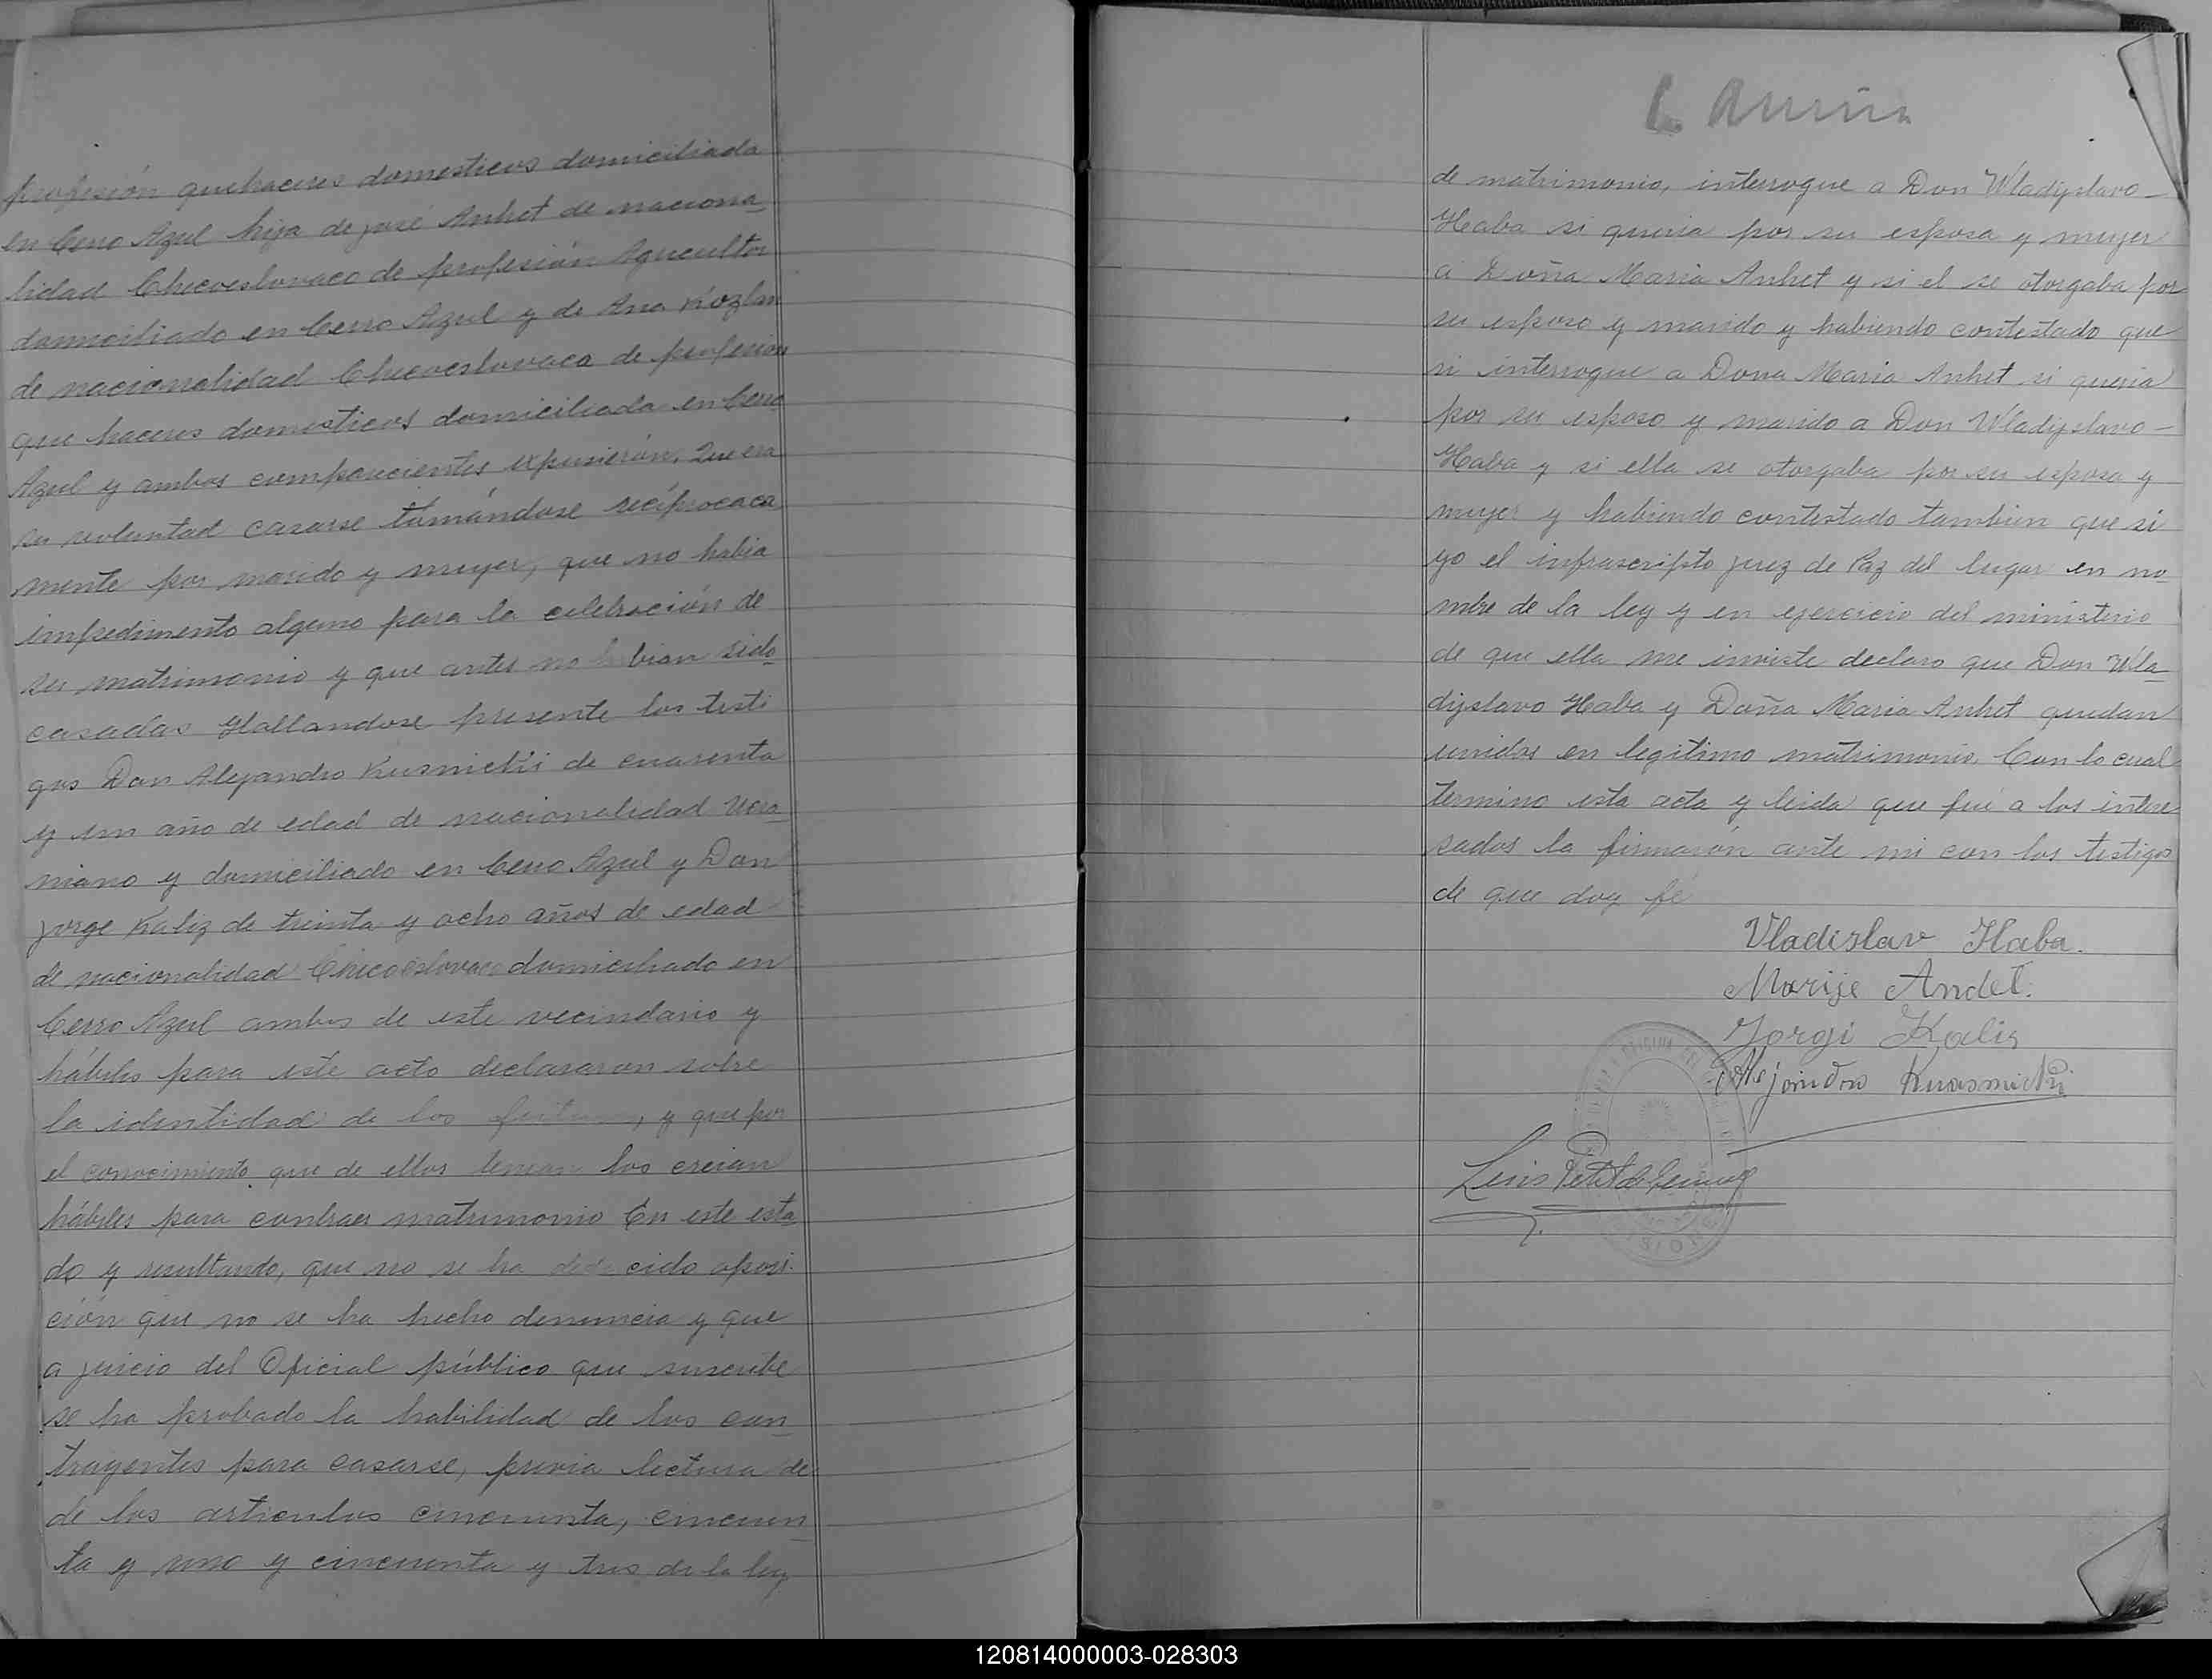 profesión quehaceres domesticos domiciliada
en Cerro Azul hija de José Anhet de naciona
lidad Checoeslovaco de profesión Agricultor
domiciliado en Cerro Azul y de Ana Kozlan
de nacionalidad Checoeslovaca de profesion
que haceres domesticos domiciliada en Cerro
Azul y ambos comparecientes expusierón. Que era
su voluntad casarse tomándose recíprocaca
mente por marido y mujer, que no habia
impedimento alguno para la celebración de
su matrimonio y que antes no habian sido
casados Hallandose presente los testi
gos Don Alejandro Kusnicki de cuarenta
y un año de edad de nacionalidad Ucra
niano y domiciliado en Cerro Azul y Don
Jorge Kaliz de treinta y ocho años de edad
de nacionalidad Checoeslovaco domiciliado en
Cerro Azul ambos de este vecindario y
hábiles para este acto declararon sobre
la identidad de los , y que por
el conocimiento que de ellos tenian los creian
hábiles para contraer matrimonio En este esta
do y resultando, que no se ha deducido oposi
ción que no se ha hecho denuncia y que
a juicio del Oficial público que suscribe
se ha probado la habilidad de los con
trayentes para casarse, previa lectura de
de los articulos cincuenta, cincuen
ta y uno y cincuenta y tres de la ley
de matrimonio, interrogue a Don Wladyslavo
Haba si queria por su esposa y mujer
a Doña Maria Anhet y si el se otorgaba por
su esposo y marido y habiendo contestado que
si interrogue a Dona Maria Anhet si queria
por su esposo y marido a Don Wladyslavo
Haba y si ella se otorgaba por su esposa y
mujer y habiendo contestado tambien que si
yo el infrascripto juez de Paz del lugar en no
mbre de la ley y en ejercicio del ministerio
de que ella me inviste declaro que Don Wla
dyslavo Haba y Doña Maria Anhet quedan
unidos en legitimo matrimonio. Con lo cual
termino esta acta y leida que fué a los intere
sados la firmarón ante mi con los testigos
de que doy fé
Vladislav Haba.
Marije Andet.
Jorgi Kalis
Alejandro Kuasmicki
Luis
120814000003-028303